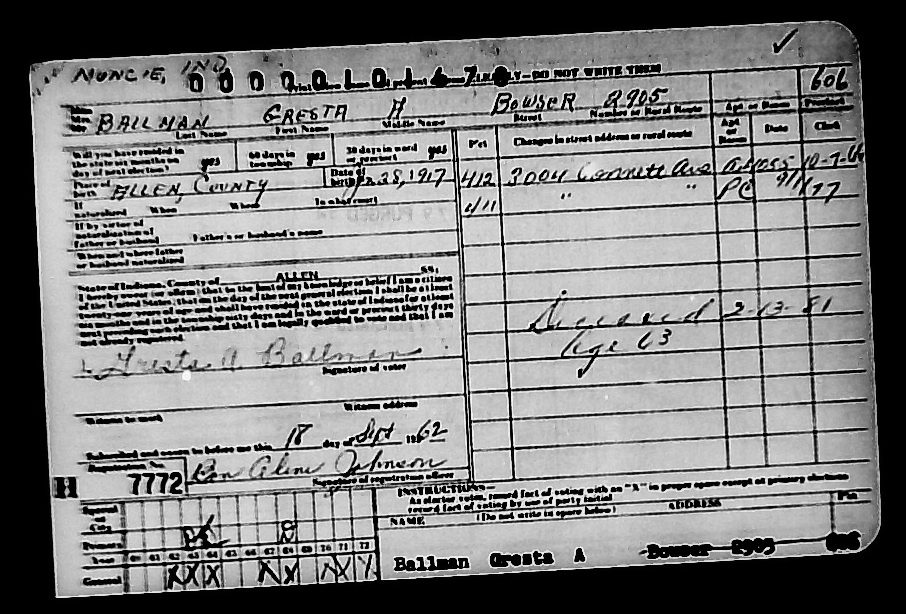 MUNCIE, IND
DO NOT WRITE THEM
606
BALLMAN GRESTA A BOWSER 2905
Last Name First Name Middle Name Street Number or Rural Route Apt or Room Precinct
Will you have resided in the state six months on day of next election? yes 60 days in township yes 30 days in ward or precinct yes Pct Changes in street address or rural route Apt or Room Date Clerk
Place of birth ALLEN, COUNTY Date of birth 28, 1917 412 3004 Connett Ave 10-7-66
If naturalized When Where In what court 411 " " PC 9/1/77
If by virtue of naturalization of father or husband Father's or husband's name
When and where father or husband naturalized
State of Indiana, County of ALLEN SS:
I hereby swear (or affirm) that to the best of my knowledge or belief I am a citizen
of the United States; that on the day of the next general election I shall be at least
twenty-one years of age and shall have resided in the state of Indiana for at least
six months and in the township sixty days and in the ward or precinct thirty days
next preceding such election and that I am legally qualified to vote and that I am
not already registered.
Deceased 2-13-81
Age 63
Gresta A Ballman
Signature of voter
Witness to mark Witness address
Subscribed and sworn to before me this 18 day of Sept 1962
Registration No.
H 7772 Johnson
Signature of registration officer
INSTRUCTIONS—
As elector votes, record fact of voting with an "X" in proper space except at primary elections
record fact of voting by use of party initial
NAME (Do not write in space below) ADDRESS Pct
Special or City
Primary D
Year 60 61 62 63 64 65 66 67 68 69 70 71 72
General X X X X X X X X
Ballman Gresta A Bowser 2905 606